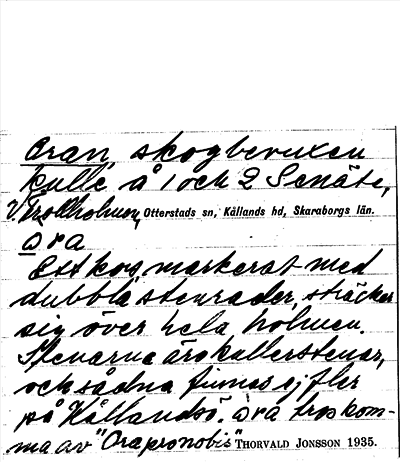 Oran, skogbevuxen
kulle å 1 och 2 Senäte,
V. Trollholmen, Otterstads sn, Kållands hd, Skaraborgs län.
ora
Ett kors markerat med
dubbla stenrader, sträcker
sig över hela holmen.
Stenarna äro kullerstenar,
och sådna finnas ej fler
på Kållandsö. Ora tros kom-
ma av "Ora pro nobis" THORVALD JONSSON 1935.